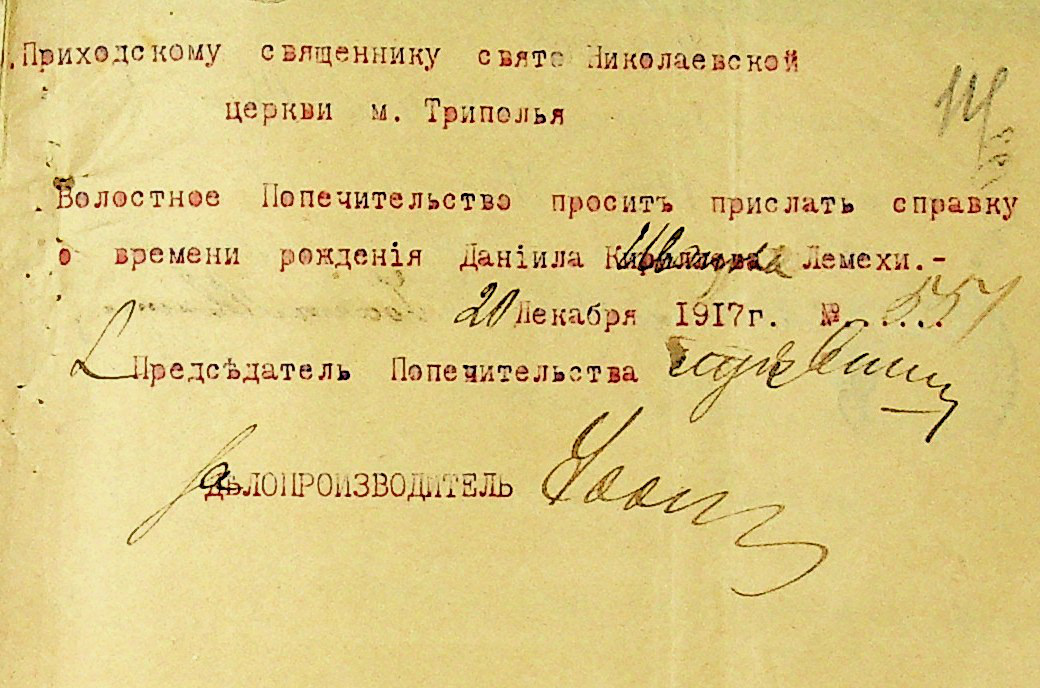 Приходскому священнику свято Николаевской
церкви м. Триполья
Волостное Попечительство проситъ прислать справку
о времени рожденія Даніила Лемехи.-
20 Декабря 1917г. №......
Предсѣдатель Попечительства
За ДѢЛОПРОИЗВОДИТЕЛЬ